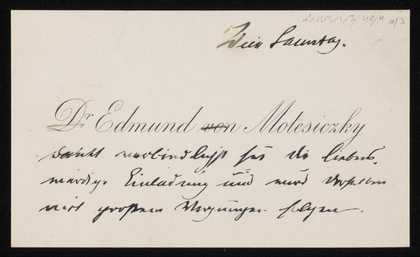 Wien Samstag.
Dr Edmund von Motesiczky
dankt verbindlichst für die liebens-
würdige Einladung und wird derselben
mit großem Vergnügen folgen.